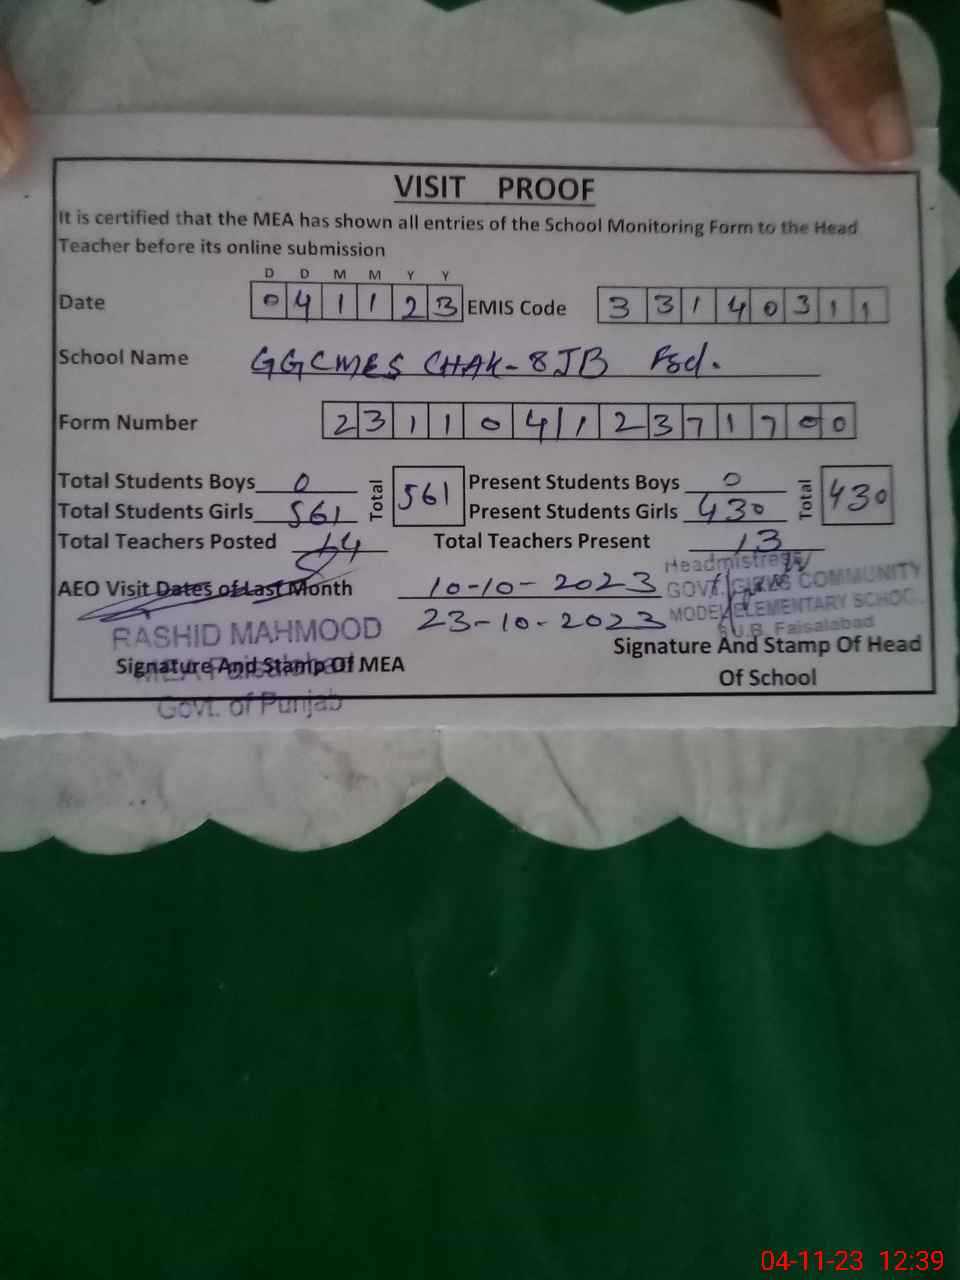 VISIT PROOF
It is certified that the MEA has shown all entries of the School Monitoring Form to the Head
Teacher before its online submission
D D M M Y Y
Date 0 4 1 1 2 3 EMIS Code 3 3 1 4 0 3 1 1
School Name GGCMES CHAK-8JB Fsd.
Form Number 2 3 1 1 0 4 1 2 3 7 1 7 0 0
Total Students Boys 0 Total 561 Present Students Boys 0 Total 430
Total Students Girls 561 Present Students Girls 430
Total Teachers Posted 14 Total Teachers Present 13
AEO Visit Dates of Last Month 10-10-2023
23-10-2023
Headmistress
GOVT. GIRLS COMMUNITY
MODEL ELEMENTARY SCHOOL
J.B. Faisalabad
RASHID MAHMOOD
MEA Faisalabad
Govt. of Punjab
Signature And Stamp Of MEA
Signature And Stamp Of Head
Of School
04-11-23 12:39